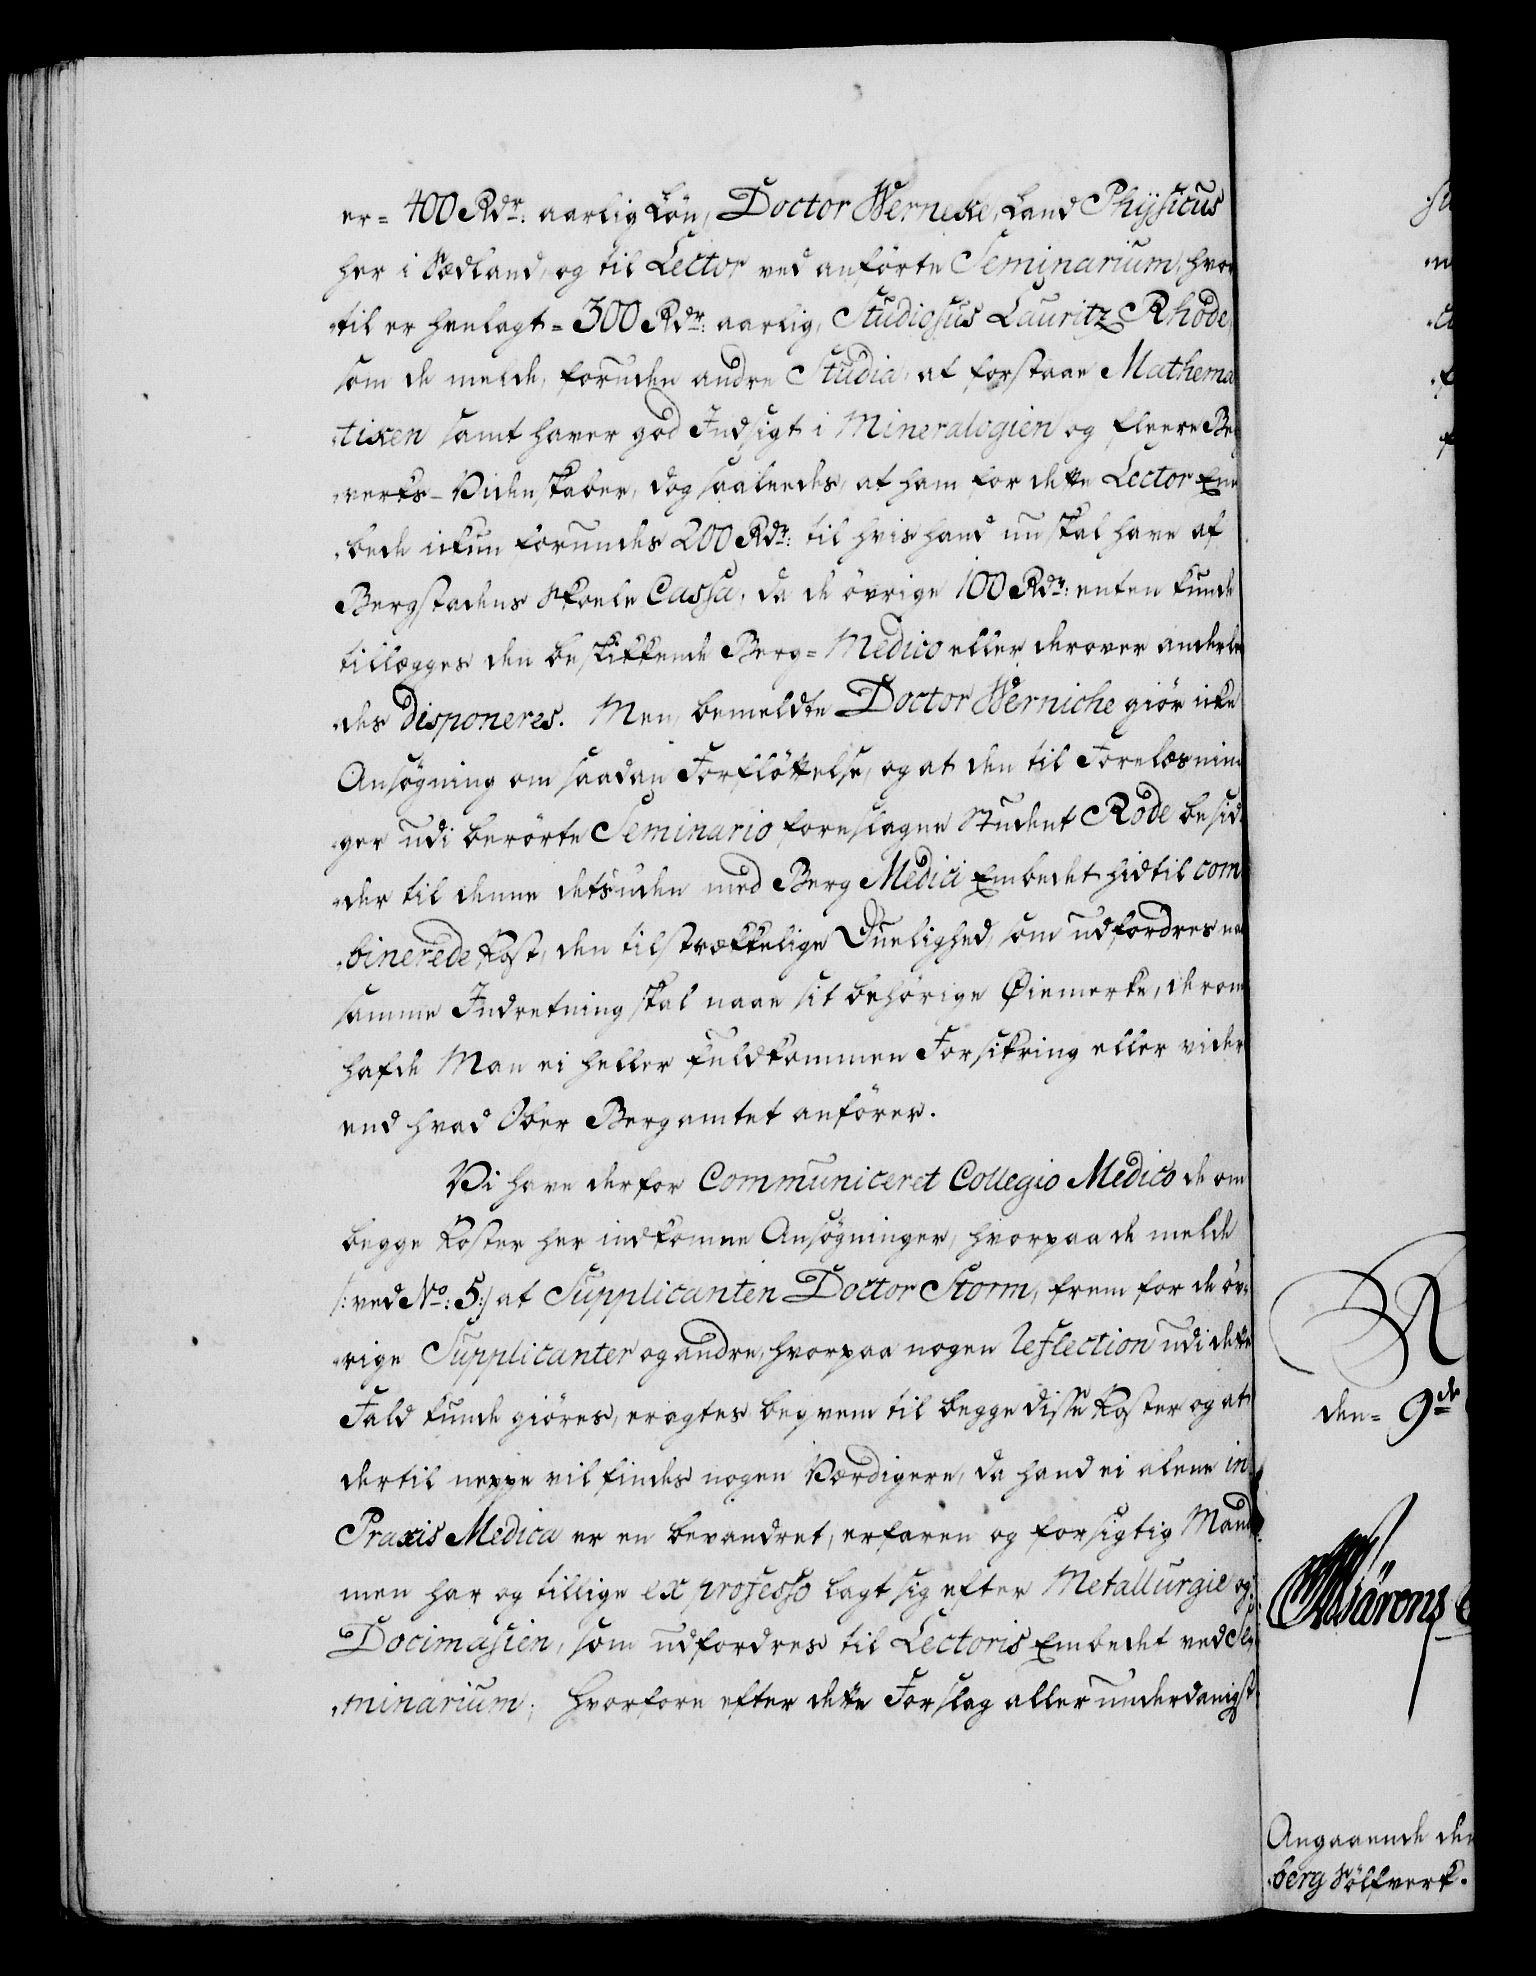 er = 400 Rdr: aarlig Løn, Doctor Werneke, Land Physicus
her i Sædland, og til Lector ved anførte Seminarium, hvor
-til er henlagt = 300 Rdr: aarlig, Studiosus Lauritz Rhode,
som de melde, foruden andre Studia, at forstaae Mathema
-tiken samt haver god Indsigt i Mineralogien og fleere Ber
-verks-Videnskaber, dog saaledes, at ham for dette Lector Em
-bede ickun forundes 200 Rdr: til hvis hand nu skal have af
Bergstadens Skoele Cassa, da de øvrige 100 Rdr: enten kunde
tillægges den beskikkende Berg-Medico eller derover anderle
-des disponeres. Men, bemeldte Doctor Werniche giør icke
Ansøgning om saadan Forflöttelse, og at den til Forelæsnin
-ger udi berørte Seminario foreslagne Student Rode besid
-der til denne detsuden med Berg Medici Embedet hidtil com
-binerede Post, den tilstrækkelige Duelighed, som udfordres naar
samme Indretning skal naae sit behørige Øiemerke, derom
hafde Man ei heller fuldkommen Forsikring eller vider
end hvad Ober Bergamtet anfører.
Vi have derfor Communiceret Collegio Medico de om
begge Poster her indkomne Ansøgninger, hvorpaa de melde
/: ved No: 5 :/ at Supplicanten Doctor Storm, frem for de øv-
-rige Supplicanter og andre, hvorpaa nogen Reflection udi dette
Fald kunde giøres, eragtes beqvem til begge disse Poster og at
dertil neppe vil findes nogen Værdigere, da hand ei alene in
Praxis Medica er en bevandret, erfaren og forsigtig Mand
men har og tillige ex professo lagt sig efter Metallurgie og
Docimasien, som udfordres til Lectoris Embedet ved Se-
-minarium; hvorfore efter dette Forslag allerunderdanigst
den = 9de
Angaaende den
-berg Sølfverk.